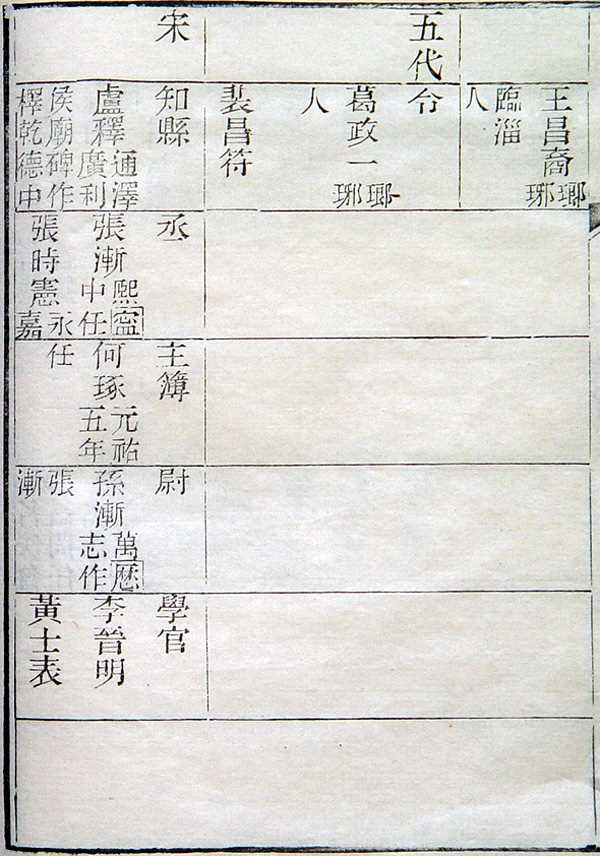 五代
宋
王昌裔瑯琊
臨淄
人
令
葛政一瑯琊
人
裴昌符
知縣
盧釋通澤廣利
侯廟碑作
檡乾德中
丞
張漸熙寧中任
張時憲永嘉
主簿
何琢元祐五年
任
尉
孫漸萬歷志作
張漸
學官
李晉明
黃士表